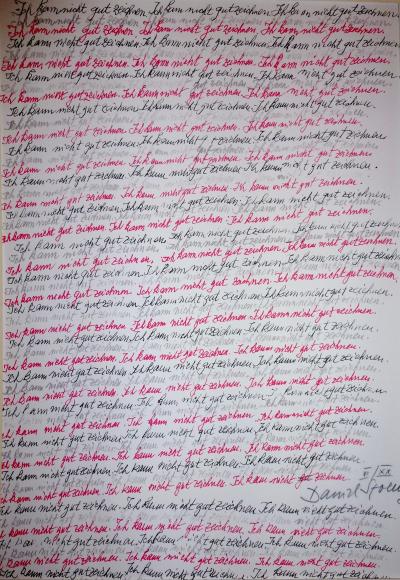 Ich kann nicht gut zeichnen. Ich kann nicht gut zeichnen. Ich kann nicht gut zeichnen.
Ich kann nicht gut zeichnen. Ich kann nicht gut zeichnen. Ich kann nicht gut zeichnen.
Ich kann nicht gut zeichnen. Ich kann nicht gut zeichnen. Ich kann nicht gut zeichnen.
Ich kann nicht gut zeichnen. Ich kann nicht gut zeichnen. Ich kann nicht gut zeichnen.
Ich kann nicht gut zeichnen. Ich kann nicht gut zeichnen. Ich kann nicht gut zeichnen.
Ich kann nicht gut zeichnen. Ich kann nicht gut zeichnen. Ich kann nicht gut zeichnen.
Ich kann nicht gut zeichnen. Ich kann nicht gut zeichnen. Ich kann nicht gut zeichnen.
Ich kann nicht gut zeichnen. Ich kann nicht gut zeichnen. Ich kann nicht gut zeichnen.
Ich kann nicht gut zeichnen. Ich kann nicht gut zeichnen. Ich kann nicht gut zeichnen.
Ich kann nicht gut zeichnen. Ich kann nicht gut zeichnen. Ich kann nicht gut zeichnen.
Ich kann nicht gut zeichnen. Ich kann nicht gut zeichnen. Ich kann nicht gut zeichnen.
Ich kann nicht gut zeichnen. Ich kann nicht gut zeichnen. Ich kann nicht gut zeichnen.
Ich kann nicht gut zeichnen. Ich kann nicht gut zeichnen. Ich kann nicht gut zeichnen.
Ich kann nicht gut zeichnen. Ich kann nicht gut zeichnen. Ich kann nicht gut zeichnen.
Ich kann nicht gut zeichnen. Ich kann nicht gut zeichnen. Ich kann nicht gut zeichnen.
Ich kann nicht gut zeichnen. Ich kann nicht gut zeichnen. Ich kann nicht gut zeichnen.
Ich kann nicht gut zeichnen. Ich kann nicht gut zeichnen. Ich kann nicht gut zeichnen.
Ich kann nicht gut zeichnen. Ich kann nicht gut zeichnen. Ich kann nicht gut zeichnen.
Ich kann nicht gut zeichnen. Ich kann nicht gut zeichnen. Ich kann nicht gut zeichnen.
Ich kann nicht gut zeichnen. Ich kann nicht gut zeichnen. Ich kann nicht gut zeichnen.
Ich kann nicht gut zeichnen. Ich kann nicht gut zeichnen. Ich kann nicht gut zeichnen.
Ich kann nicht gut zeichnen. Ich kann nicht gut zeichnen. Ich kann nicht gut zeichnen.
Ich kann nicht gut zeichnen. Ich kann nicht gut zeichnen. Ich kann nicht gut zeichnen.
Ich kann nicht gut zeichnen. Ich kann nicht gut zeichnen. Ich kann nicht gut zeichnen.
Ich kann nicht gut zeichnen. Ich kann nicht gut zeichnen. Ich kann nicht gut zeichnen.
Ich kann nicht gut zeichnen. Ich kann nicht gut zeichnen. Ich kann nicht gut zeichnen.
Ich kann nicht gut zeichnen. Ich kann nicht gut zeichnen. Ich kann nicht gut zeichnen.
Ich kann nicht gut zeichnen. Ich kann nicht gut zeichnen. Ich kann nicht gut zeichnen.
Ich kann nicht gut zeichnen. Ich kann nicht gut zeichnen. Ich kann nicht gut zeichnen.
Ich kann nicht gut zeichnen. Ich kann nicht gut zeichnen. Ich kann nicht gut zeichnen.
XX
Daniel
Ich kann nicht gut zeichnen. Ich kann nicht gut zeichnen. Ich kann nicht gut zeichnen.
Ich kann nicht gut zeichnen. Ich kann nicht gut zeichnen. Ich kann nicht gut zeichnen.
Ich kann nicht gut zeichnen. Ich kann nicht gut zeichnen. Ich kann nicht gut zeichnen.
Ich kann nicht gut zeichnen. Ich kann nicht gut zeichnen. Ich kann nicht gut zeichnen.
Ich kann nicht gut zeichnen. Ich kann nicht gut zeichnen. Ich kann nicht gut zeichnen.